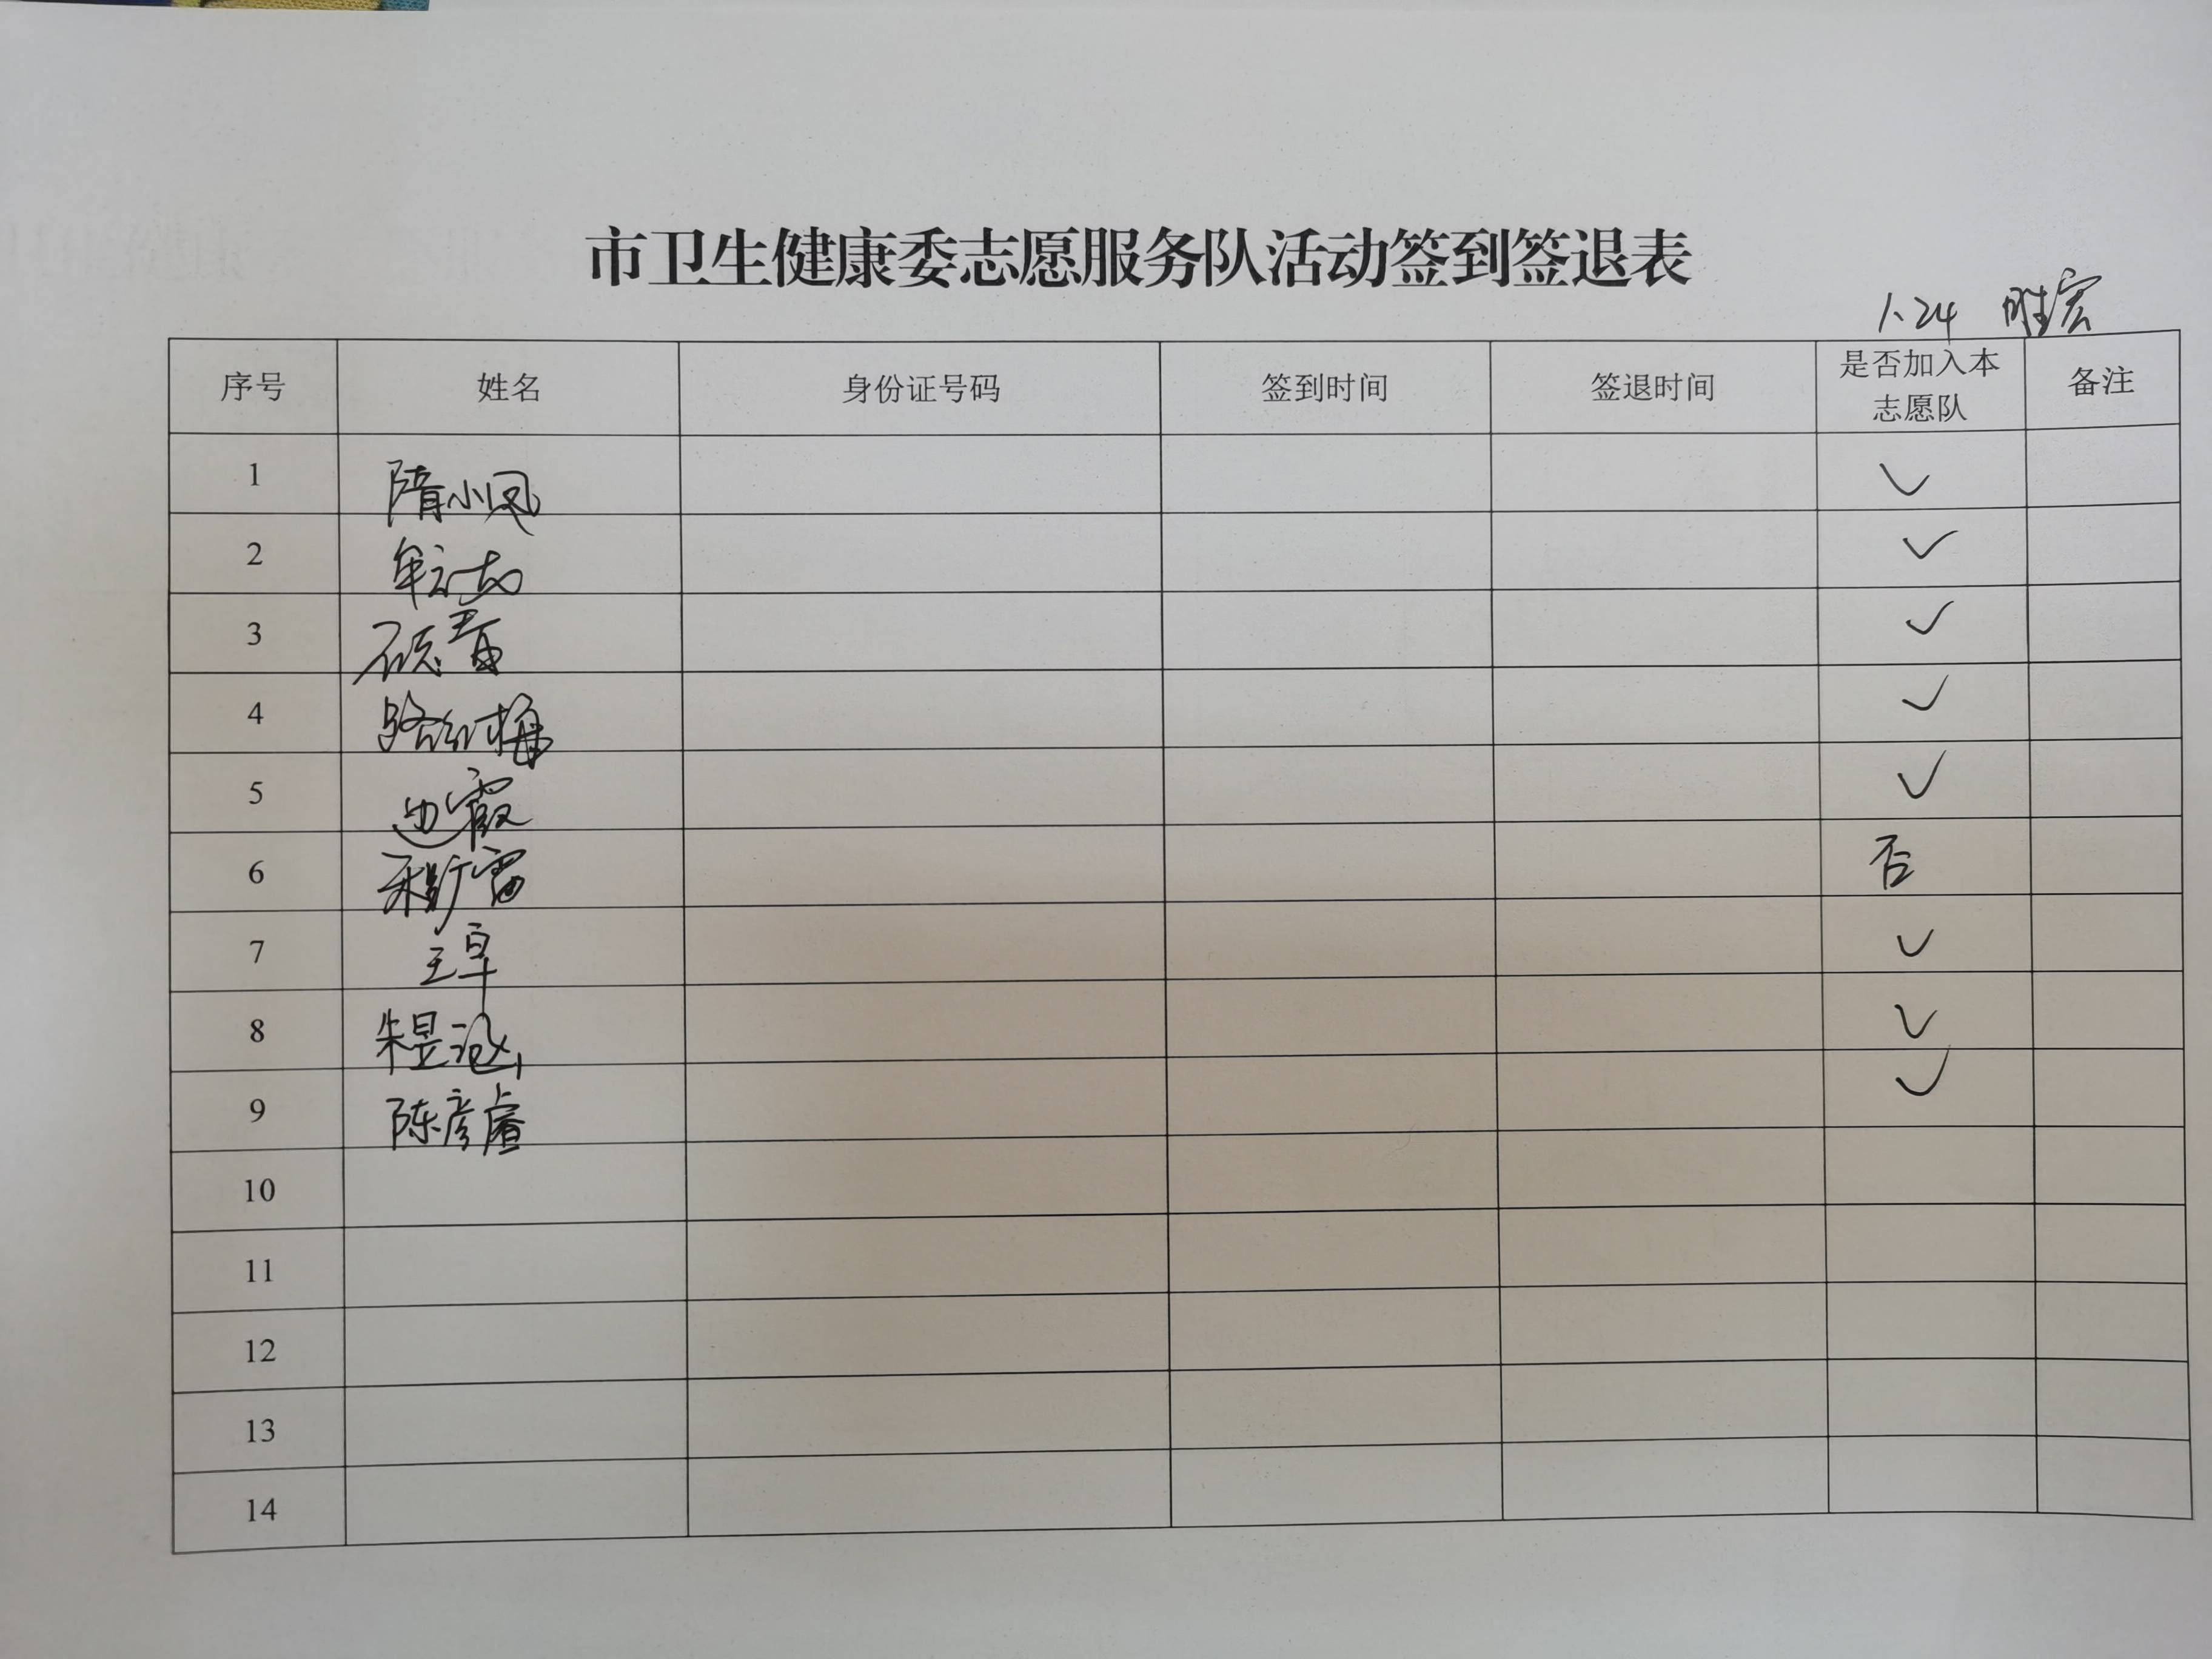 市卫生健康委志愿服务队活动签到签退表
1.24 胜宏
序号 姓名 身份证号码 签到时间 签退时间 是否加入本志愿队 备注
1 隋小凤 ✓
2 ✓
3 顾青 ✓
4 路红梅 ✓
5 边霞 ✓
6 否
7 王早 ✓
8 朱昱 ✓
9 陈彦睿 ✓
10
11
12
13
14